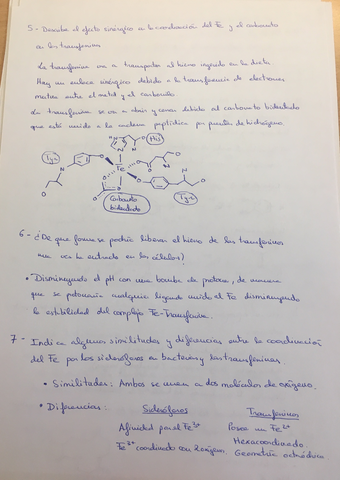 5- Describa el efecto sinérgico en la coordinación del Fe y el carbonato
en las transferrinas
La transferrina va a transportar el hierro ingerido en la dieta
Hay un enlace sinérgico debido a la transferencia de electrones
mutua entre el metal y el carbonilo.
La transferrina se va a abrir y cerrar debido al carbonato bidentado
que está unido a la cadena peptídica por puentes de hidrógeno.
His
Tyr
Fe
Carbonato
bidentado
Tyr
6- ¿De que forma se podría liberar el hierro de las transferrinas
una vez ha entrado en las células?
• Disminuyendo el pH con una bomba de protones, de manera
que se protonaría cualquier ligando unido al Fe disminuyendo
la estabilidad del complejo Fe-Transferrina.
7- Indica algunas similitudes y diferencias entre la coordinación
del Fe por los sideróforos en bacterias y las transferrinas.
• Similitudes: Ambos se unen a dos moléculas de oxígeno.
• Diferencias: Sideróforos Transferrinas
Afinidad por el Fe3+ Posee un Fe2+
Fe3+ coordinado con 2 oxígenos. Hexacoordinado
Geometría octaédrica